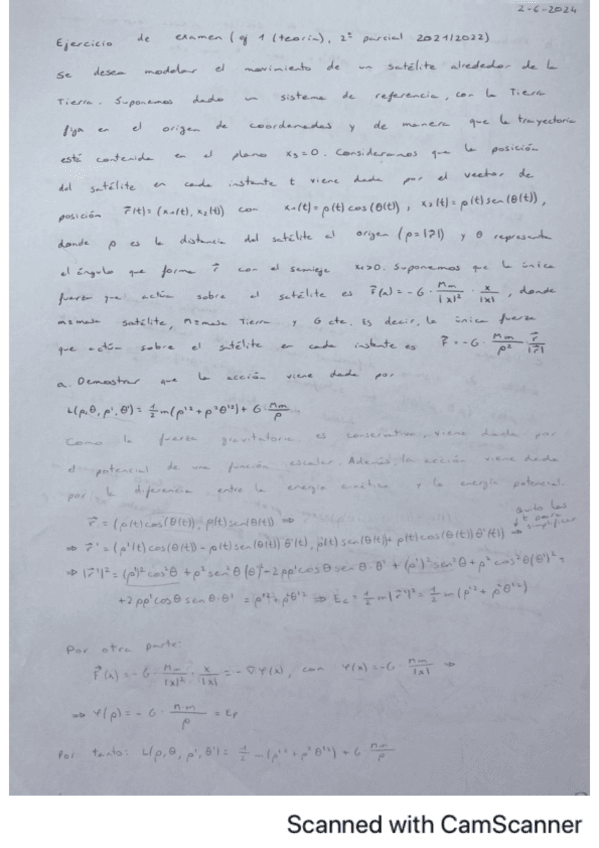 2-6-2024
Ejercicio de examen (ej 1 (teoría), 2º parcial 2021/2022)
Se desea modelar el movimiento de un satélite alrededor de la
Tierra. Suponemos dado un sistema de referencia, con la Tierra
fija en el origen de coordenadas y de manera que la trayectoria
está contenida en el plano x₃=0. Consideramos que la posición
del satélite en cada instante t viene dada por el vector de
posición r⃗(t)=(x₁(t), x₂(t)) con x₁(t)=ρ(t)cos(θ(t)), x₂(t)=ρ(t)sen(θ(t)),
donde ρ es la distancia del satélite al origen (ρ=|r⃗|) y θ representa
el ángulo que forma r⃗ con el semieje x₁>0. Suponemos que la única
fuerza que actúa sobre el satélite es F⃗(x)=-G·Mm/|x|²·x/|x|, donde
m≡masa satélite, M≡masa Tierra y G cte. Es decir, la única fuerza
que actúa sobre el satélite en cada instante es F⃗=-G·Mm/ρ²·r⃗/|r⃗|
a. Demostrar que la acción viene dada por
L(ρ,θ,ρ',θ')=1/2 m(ρ'²+ρ²θ'²)+G·Mm/ρ
Como la fuerza gravitatoria es conservativa, viene dada por
el potencial de una función escalar. Además, la acción viene dada
por la diferencia entre la energía cinética y la energía potencial.
r⃗=(ρ(t)cos(θ(t)), ρ(t)sen(θ(t))) ⇒
quito las
t para
simplificar
⇒ r⃗'=(ρ'(t)cos(θ(t))-ρ(t)sen(θ(t))θ'(t), ρ'(t)sen(θ(t))+ρ(t)cos(θ(t))θ'(t)) ⇒
⇒ |r⃗'|²=(ρ')²cos²θ+ρ²sen²θ(θ')²-2ρρ'cosθsenθ·θ'+(ρ')²sen²θ+ρ²cos²θ(θ')²+
+2ρρ'cosθsenθ·θ'=ρ'²+ρ²θ'² ⇒ Ec=1/2 m|r⃗'|²=1/2 m(ρ'²+ρ²θ'²)
Por otra parte:
F⃗(x)=-G·Mm/|x|²·x/|x|=-∇φ(x), con φ(x)=-G·Mm/|x| ⇒
⇒ φ(ρ)=-G·M·m/ρ=Ep
Por tanto: L(ρ,θ,ρ',θ')=1/2 m(ρ'²+ρ²θ'²)+G Mm/ρ
Scanned with CamScanner